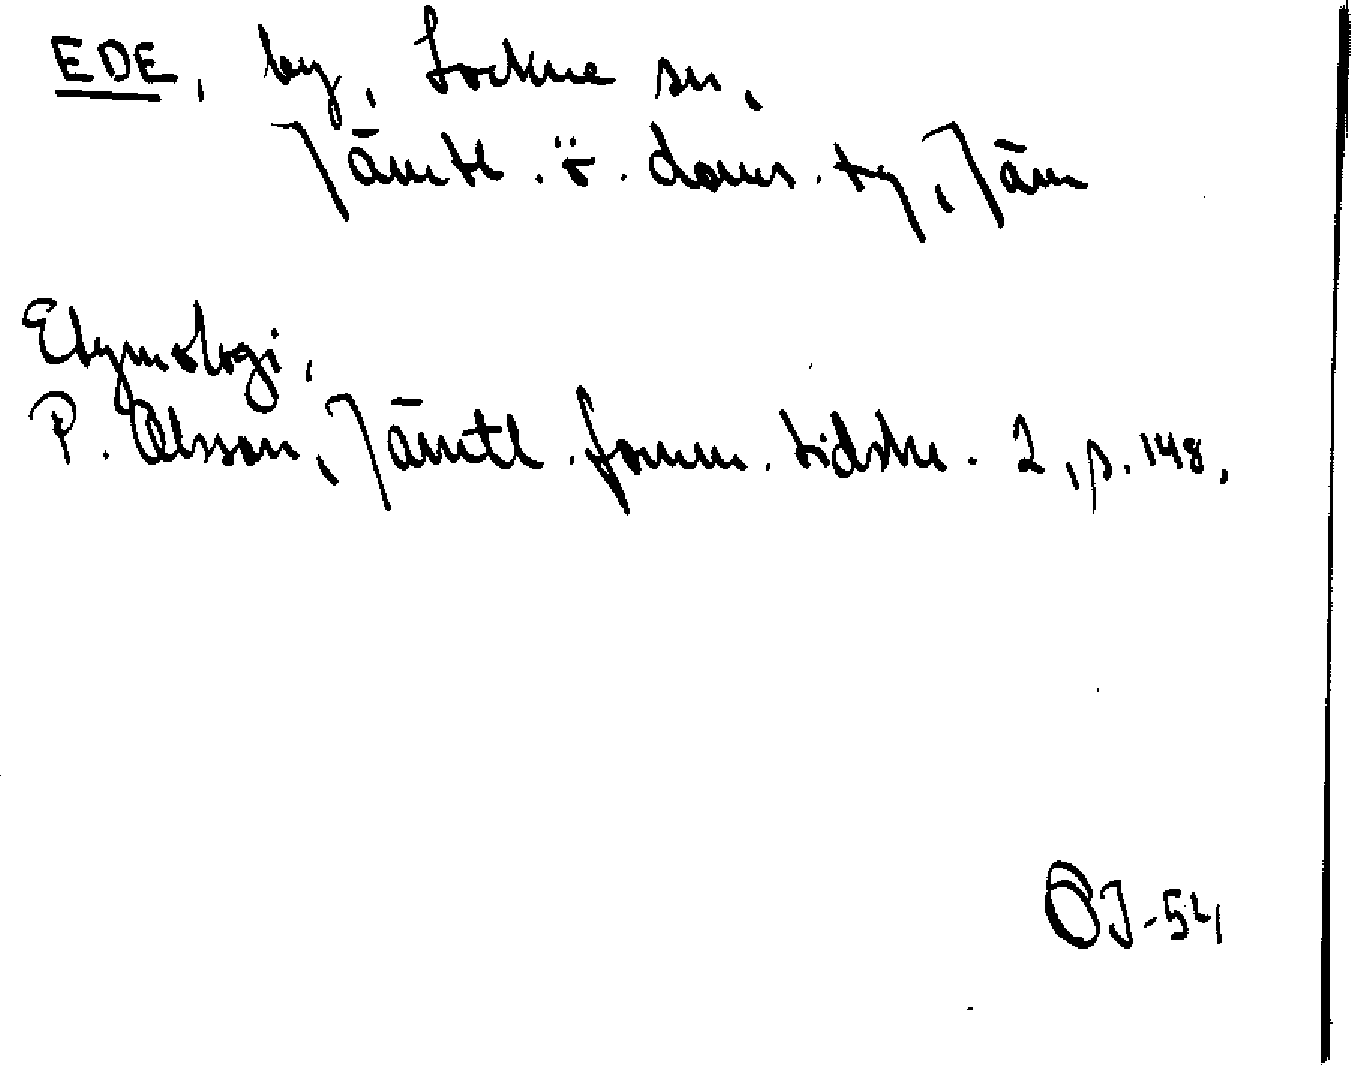 EDE, by, Lockne sn,
Jämtl. ö. doms. tg, Jäm
Etymologi,
P. Olsson, Jämtl. fornm. tidskr. 2, p. 148.
OJ-54